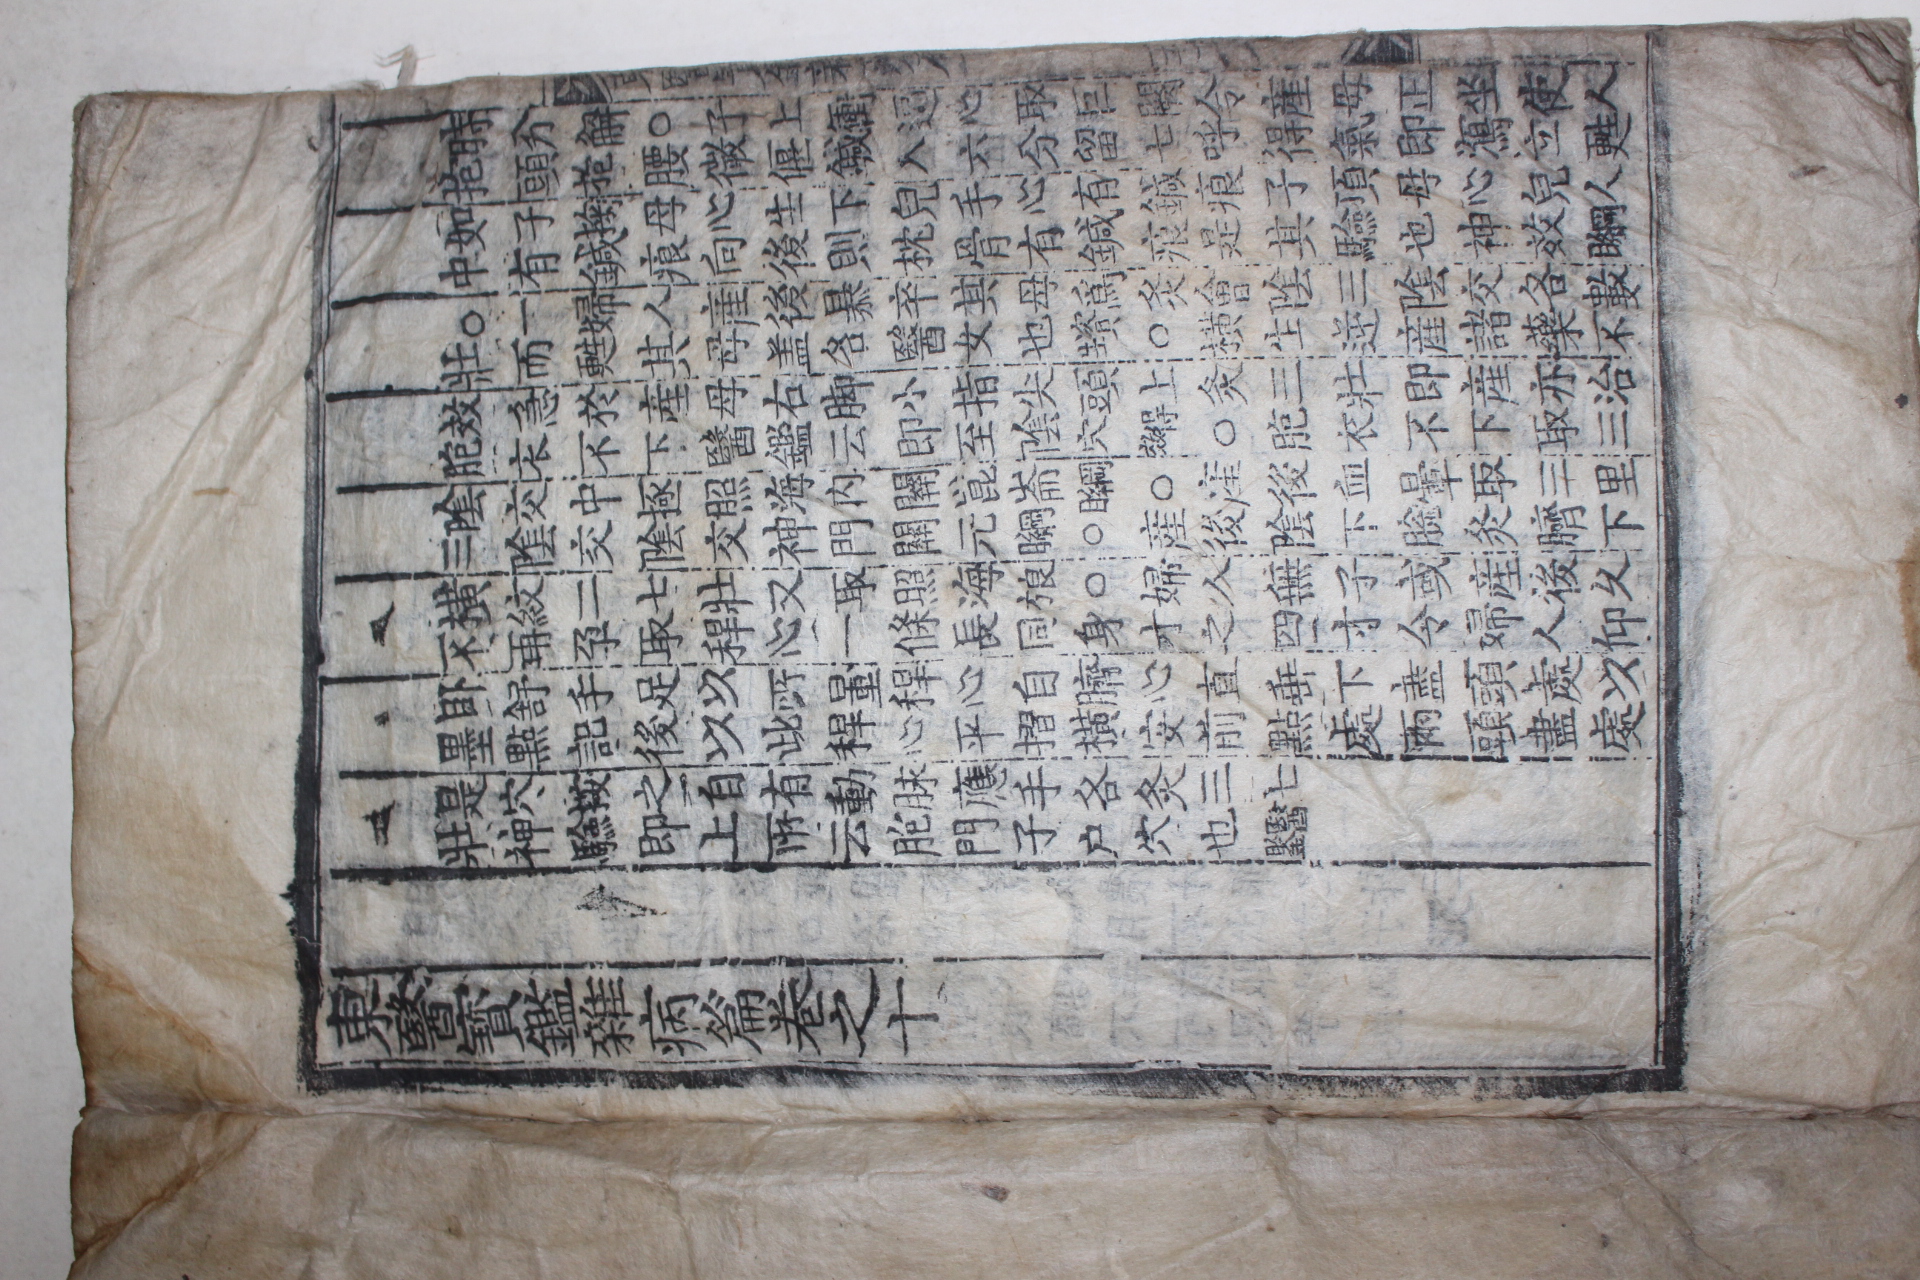 時分解○子上衝逼心取巨闕令産母正坐使人
抱頭抱腰微偃鍼入六分留七呼得氣即瀉立甦
如子掬母心生下兒手心有鍼痕子頂母心兒人
中有鍼痕向後則枕骨有鍼痕是其驗也神效綱目
○一婦人産後暴卒其母爲灸會陰三陰交各數
壯而甦其母盖名醫女也資生○橫生逆産諸藥不
效急於産母右脚小指尖頭上灸三壯即産亦治
胞衣不下醫鑑云即至陰穴得效○胞衣不下取三
陰交中極照海內關崑崙綱目○産後血暈取三里
三陰交陰交神門關元綱目○産後陰下脫灸臍下
橫紋二七壯又取照海良方○婦人無子或産後久
不再孕取稈心一條長同身寸之四寸令婦人仰
卧舒手足以所量稈心自臍心直垂下盡頭處以
墨點記後以此稈心平摺橫安前點處兩頭盡處
是穴按之自有動脉應手各灸三七
壯神驗即上所云胞門子户穴也醫鑑
東醫寶鑑雜病篇卷之十